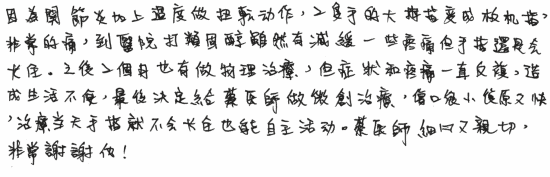 因為關節炎加上溫度做扭轉動作，2隻手的大拇指變成板机指，
非常的痛，到醫院打類固醇雖然有減緩一些疼痛但手指還是会
卡住。之後2個月也有做物理治療，但症狀和疼痛一直反複，造
成生活不便，最後決定給葉医師做微創治療，傷口很小復原又快
，治療当天手指就不会卡住也能自主活动。葉医師細心又親切，
非常謝謝他！